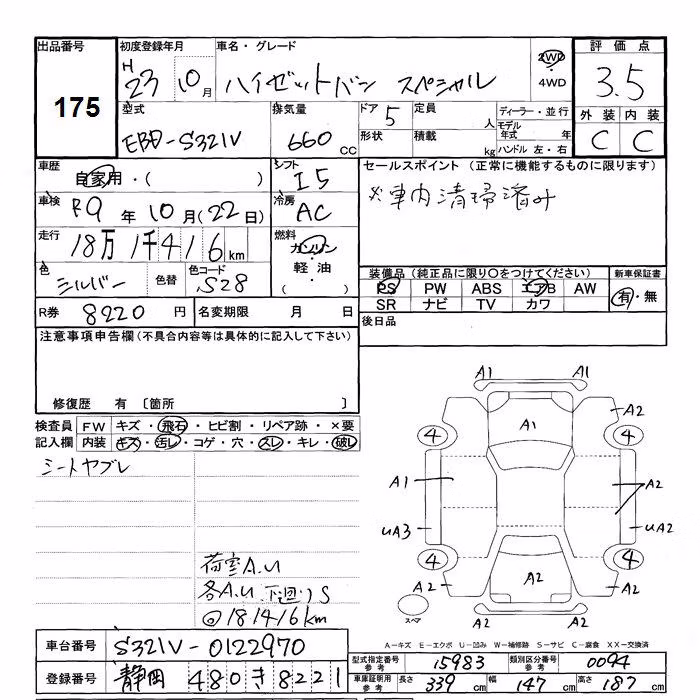 出品番号 初度登録年月 車名・グレード 2WD 評価点
175 H 23 10月 ハイゼットバン スペシャル 4WD 3.5
型式 排気量 ドア 5 定員 人 ディーラー・並行 外装 内装
EBD-S321V 660cc 形状 積載 kg モデル年式 年 C C
ハンドル 左・右
車歴 自家用・( ) シフト I5 セールスポイント (正常に機能するものに限ります)
車検 R9年10月(22日) 冷房 AC ※車内清掃済み
走行 18万1千416km 燃料 ガソリン・軽油・( )
色 シルバー 色替 色コード S28 装備品(純正品に限り○をつけてください) 新車保証書
PS PW ABS エアB AW 有・無
SR ナビ TV カワ
R券 8220円 名変期限 月 日 後日品
注意事項申告欄(不具合内容等は具体的に記入して下さい)
修復歴 有 〔箇所 〕
検査員 FW キズ・飛石・ヒビ割・リペア跡・×要
記入欄 内装 キズ・汚レ・コゲ・穴・スレ・キレ・破レ
シートヤブレ
荷室A.U
各A.U 下廻りS
@181416km
A1 A1
A2
4 A1 4
A1 A2
UA3 UA2
4 4
A2 A2 A2
A2 A2
スペア
A-キズ E-エクボ U-凹み W-補修跡 S-サビ C-腐食 XX-交換済
車台番号 S321V-0122970
登録番号 静岡 480き8221
型式指定番号 参考 15983 類別区分番号 参考 0094
車庫証明用 参考 長さ 339cm 幅 147cm 高さ 187cm